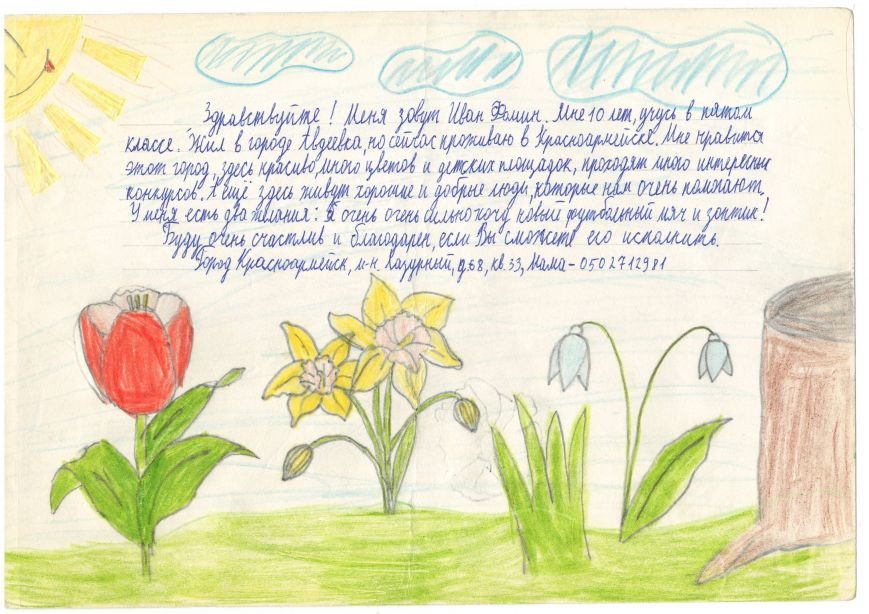 Здравствуйте! Меня зовут Иван Фомин. Мне 10 лет, учусь в пятом
классе. Жил в городе Авдеевка, но сейчас проживаю в Красноармейске. Мне нравится
этот город, здесь красиво, много цветов и детских площадок, проходят много интересных
конкурсов. А ещё здесь живут хорошие и добрые люди, которые нам очень помогают.
У меня есть два желания: Я очень очень сильно хочу новый футбольный мяч и зонтик!
Буду очень счастлив и благодарен, если Вы сможете его исполнить.
Город Красноармейск, м-н. Лазурный, д.68, кв.33, Мама - 0502712981